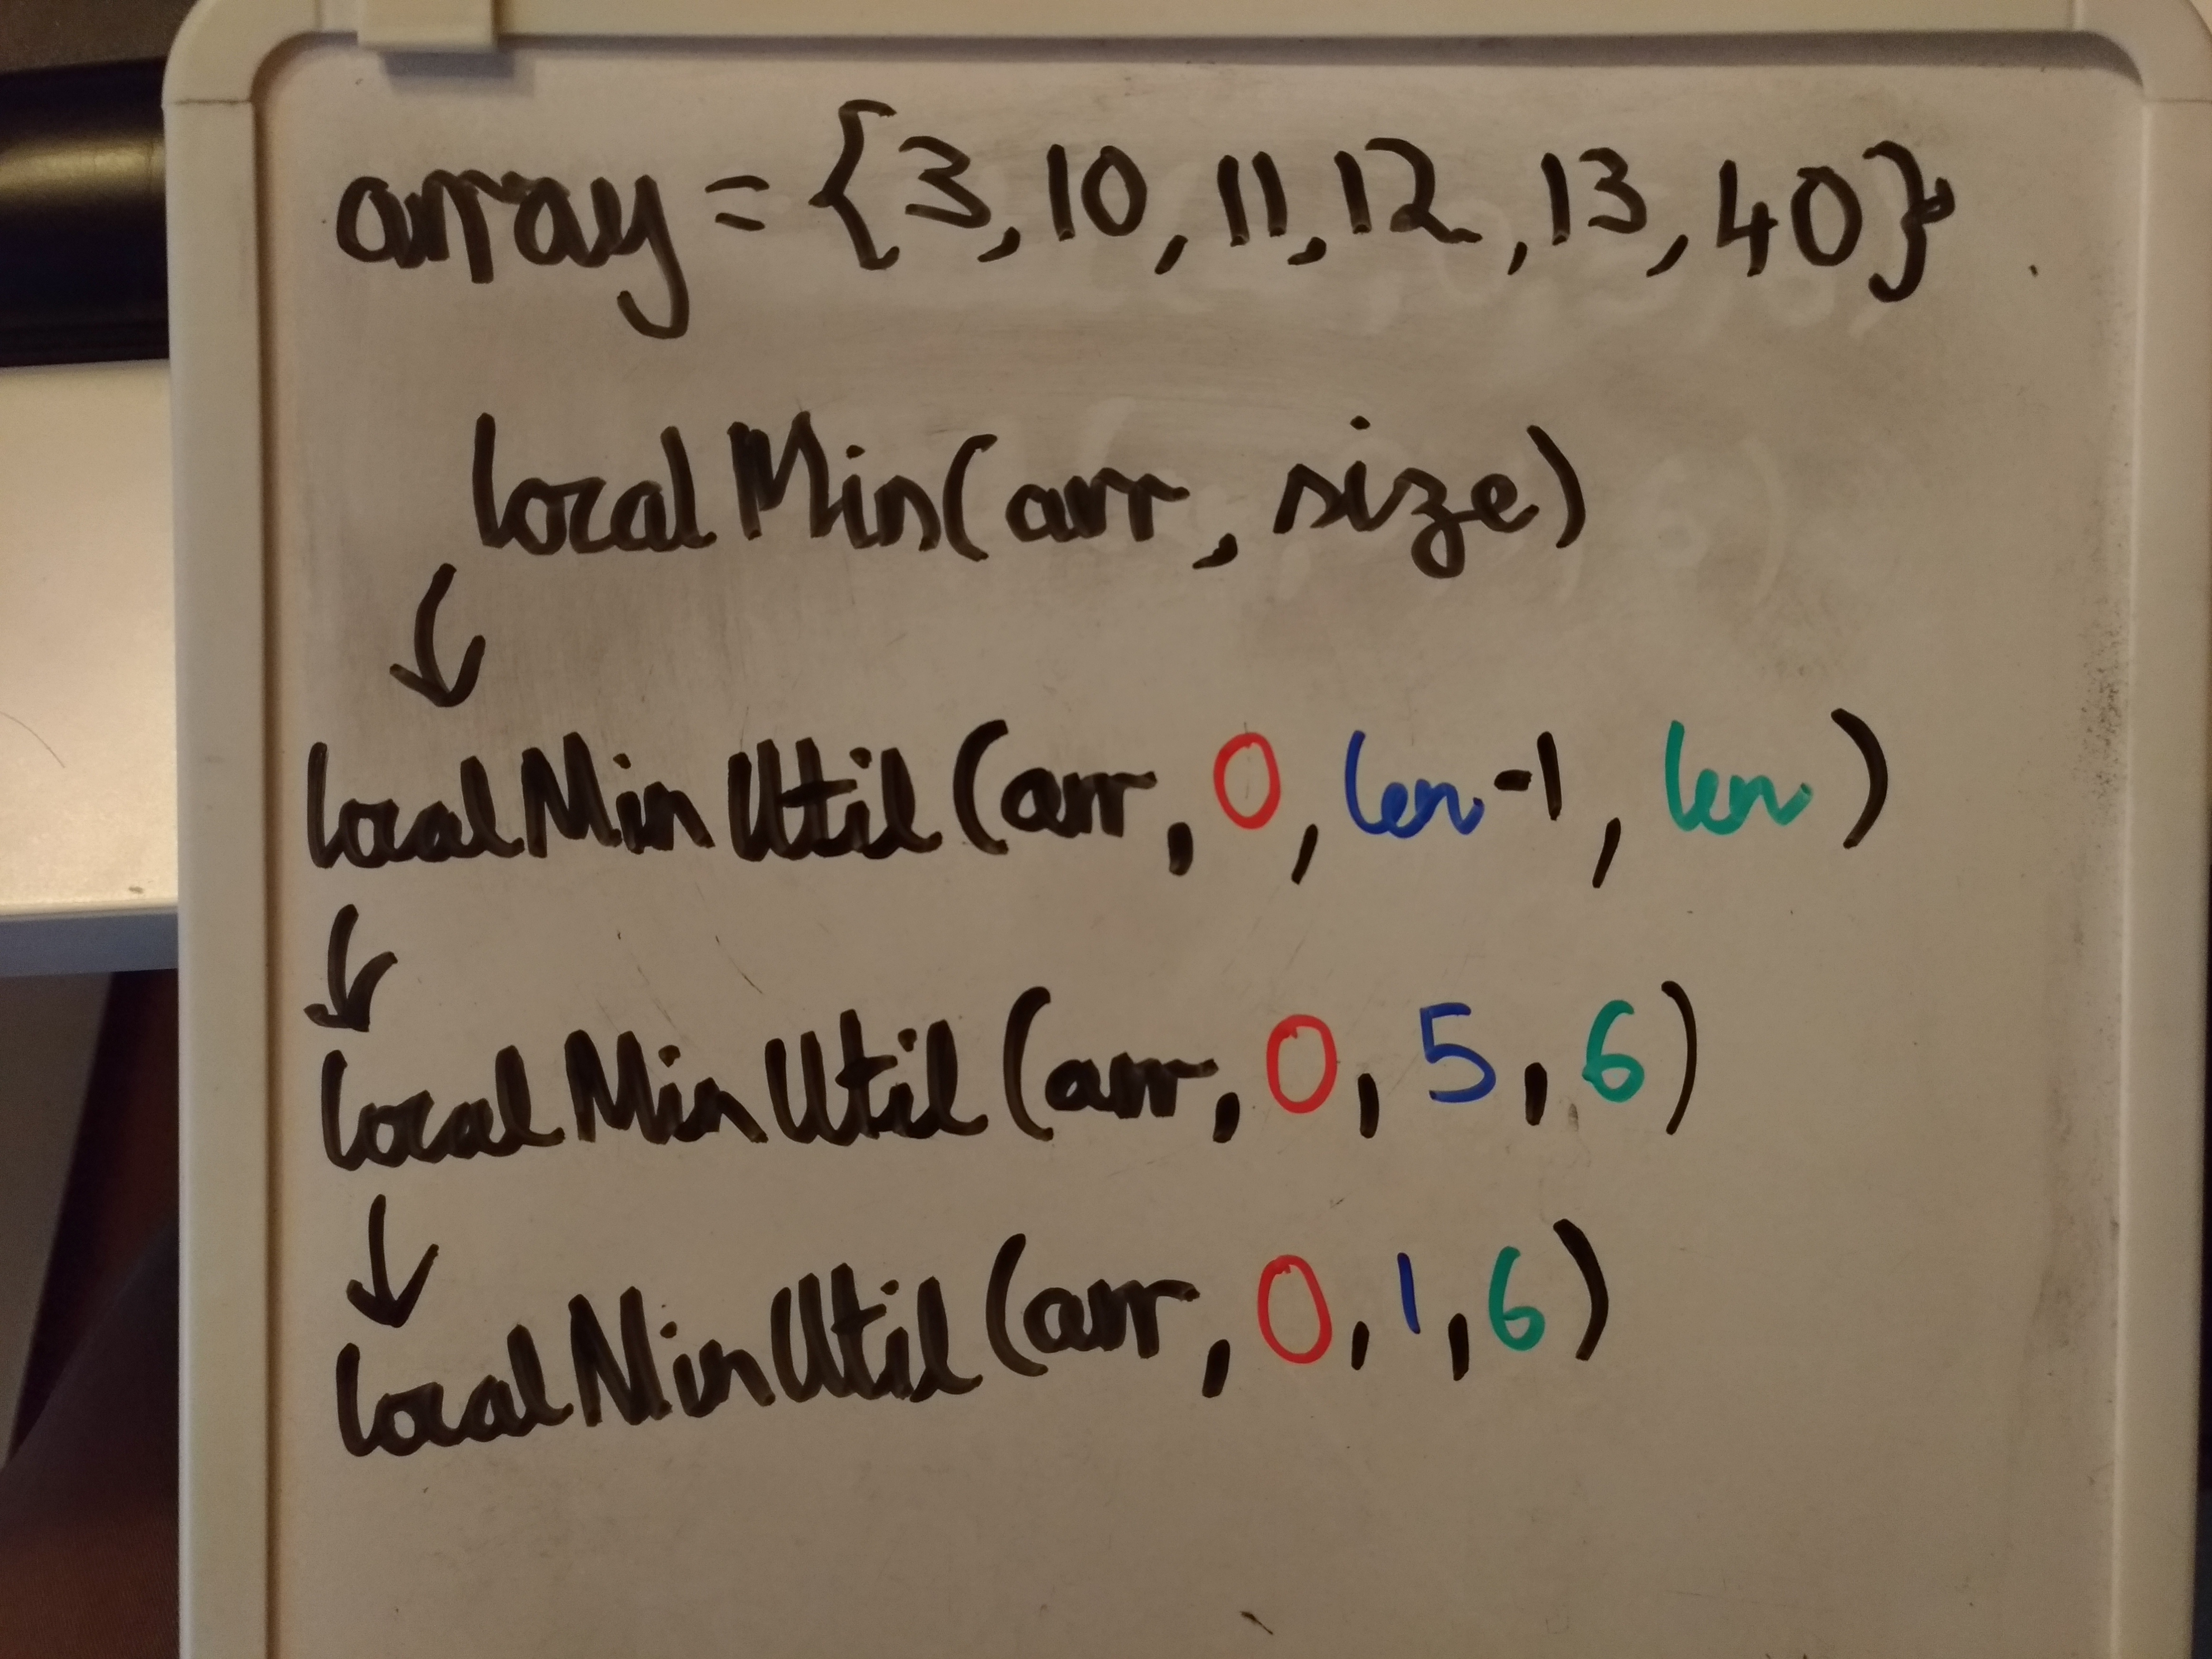 array = {3, 10, 11, 12, 13, 40}
localMin(arr, size)
localMinUtil(arr, 0, len-1, len)
localMinUtil(arr, 0, 5, 6)
localMinUtil(arr, 0, 1, 6)